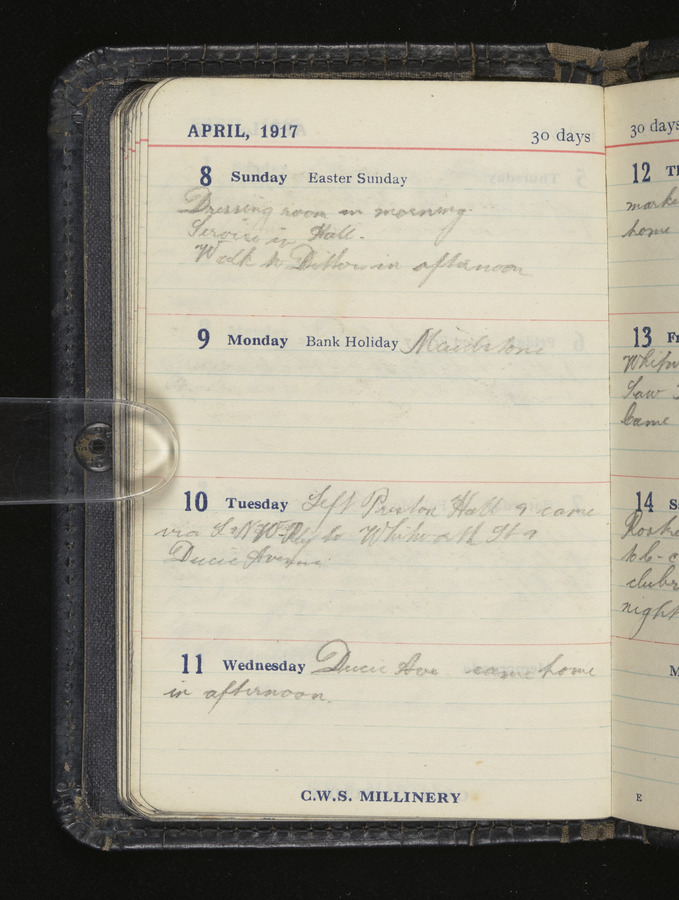 APRIL, 1917
30 days
8 Sunday Easter Sunday
Dressing room in morning.
Service in Hall.
Walk to Ditton in afternoon
9 Monday Bank Holiday Maidstone
10 Tuesday Left Preston Hall & came
via L&NW Rly to Whitworth St &
Ducie Avenue
11 Wednesday Ducie Ave came home
in afternoon.
C.W.S. MILLINERY
30 days
12
home
13
Saw
Came
14
night
E